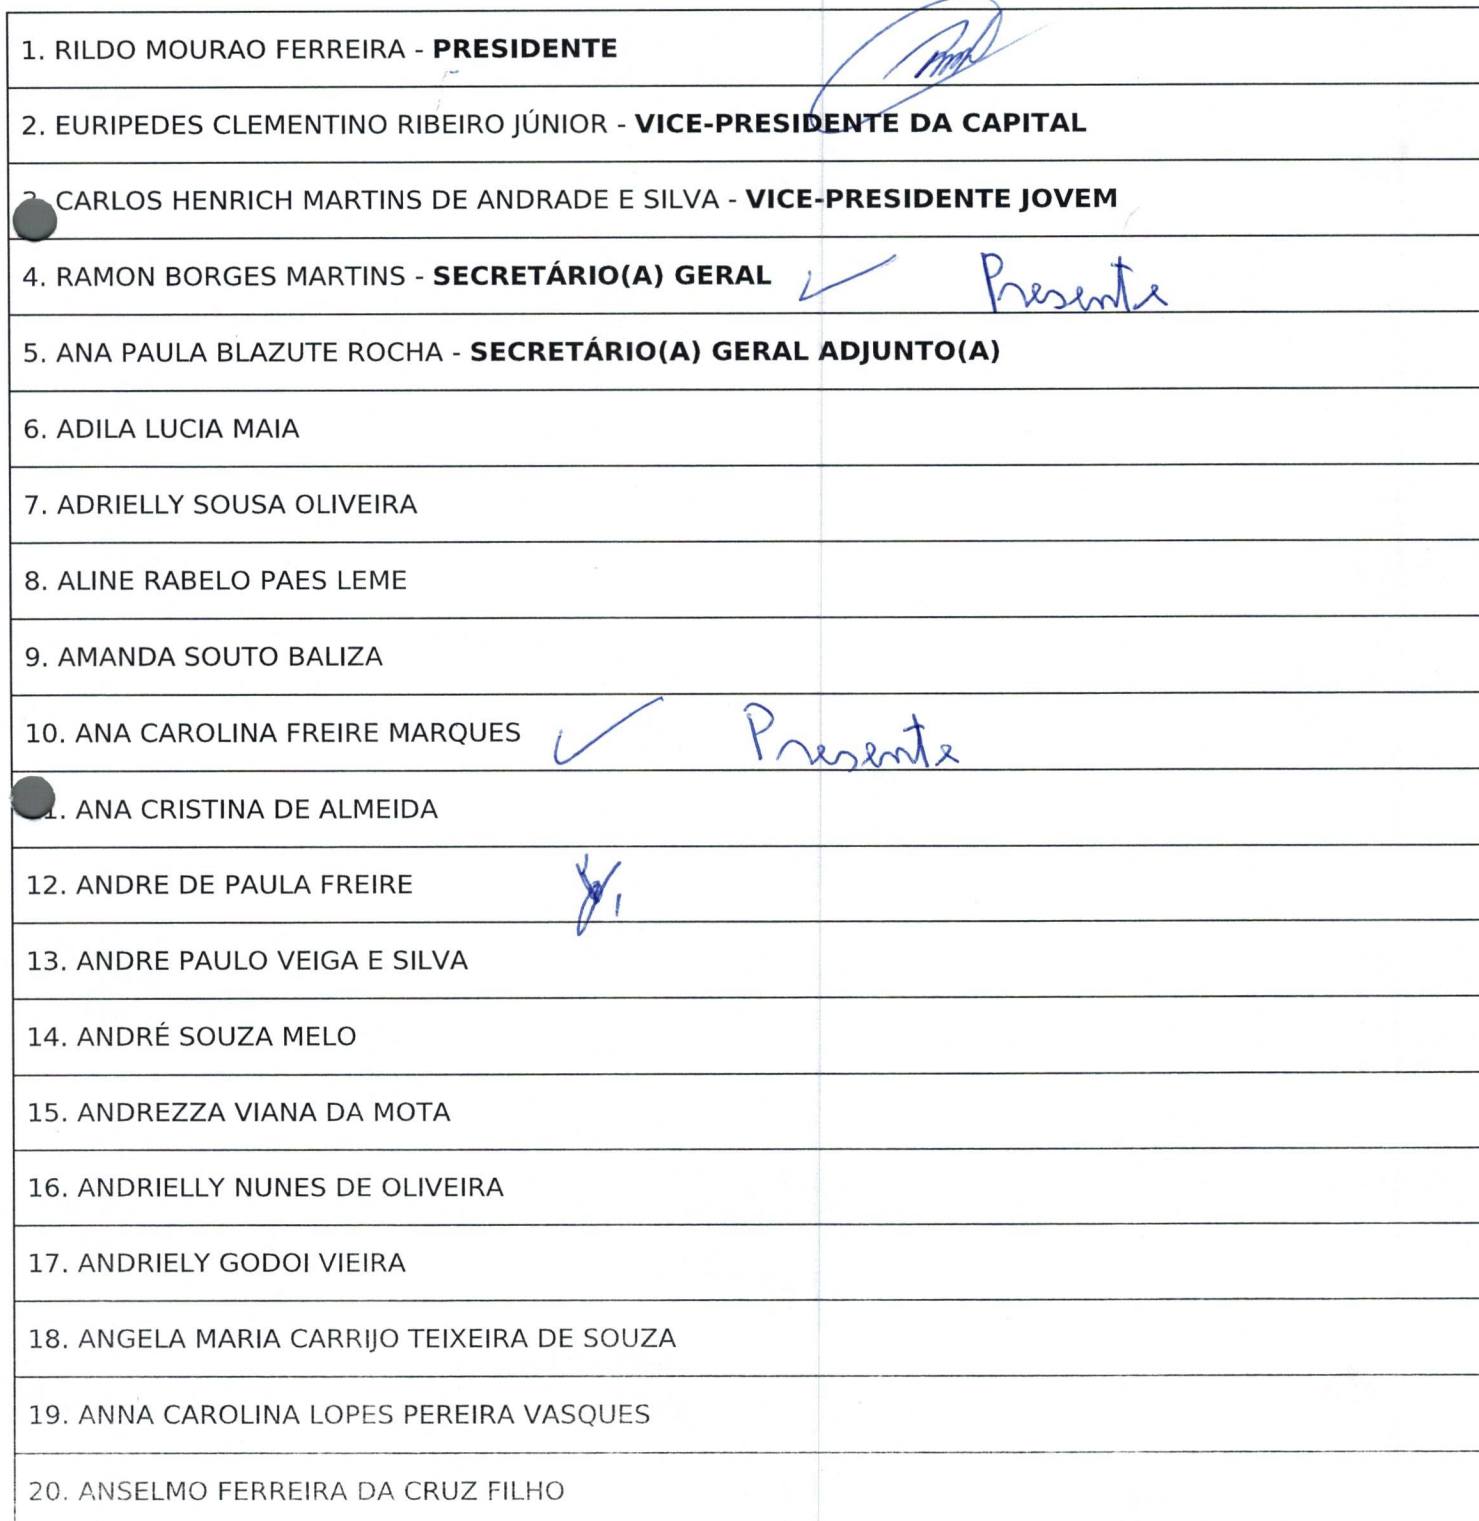 1. RILDO MOURAO FERREIRA - PRESIDENTE
2. EURIPEDES CLEMENTINO RIBEIRO JÚNIOR - VICE-PRESIDENTE DA CAPITAL
CARLOS HENRICH MARTINS DE ANDRADE E SILVA - VICE-PRESIDENTE JOVEM
4. RAMON BORGES MARTINS - SECRETÁRIO(A) GERAL ✓ Presente
5. ANA PAULA BLAZUTE ROCHA - SECRETÁRIO(A) GERAL ADJUNTO(A)
6. ADILA LUCIA MAIA
7. ADRIELLY SOUSA OLIVEIRA
8. ALINE RABELO PAES LEME
9. AMANDA SOUTO BALIZA
10. ANA CAROLINA FREIRE MARQUES ✓ Presente
1. ANA CRISTINA DE ALMEIDA
12. ANDRE DE PAULA FREIRE
13. ANDRE PAULO VEIGA E SILVA
14. ANDRÉ SOUZA MELO
15. ANDREZZA VIANA DA MOTA
16. ANDRIELLY NUNES DE OLIVEIRA
17. ANDRIELY GODOI VIEIRA
18. ANGELA MARIA CARRIJO TEIXEIRA DE SOUZA
19. ANNA CAROLINA LOPES PEREIRA VASQUES
20. ANSELMO FERREIRA DA CRUZ FILHO